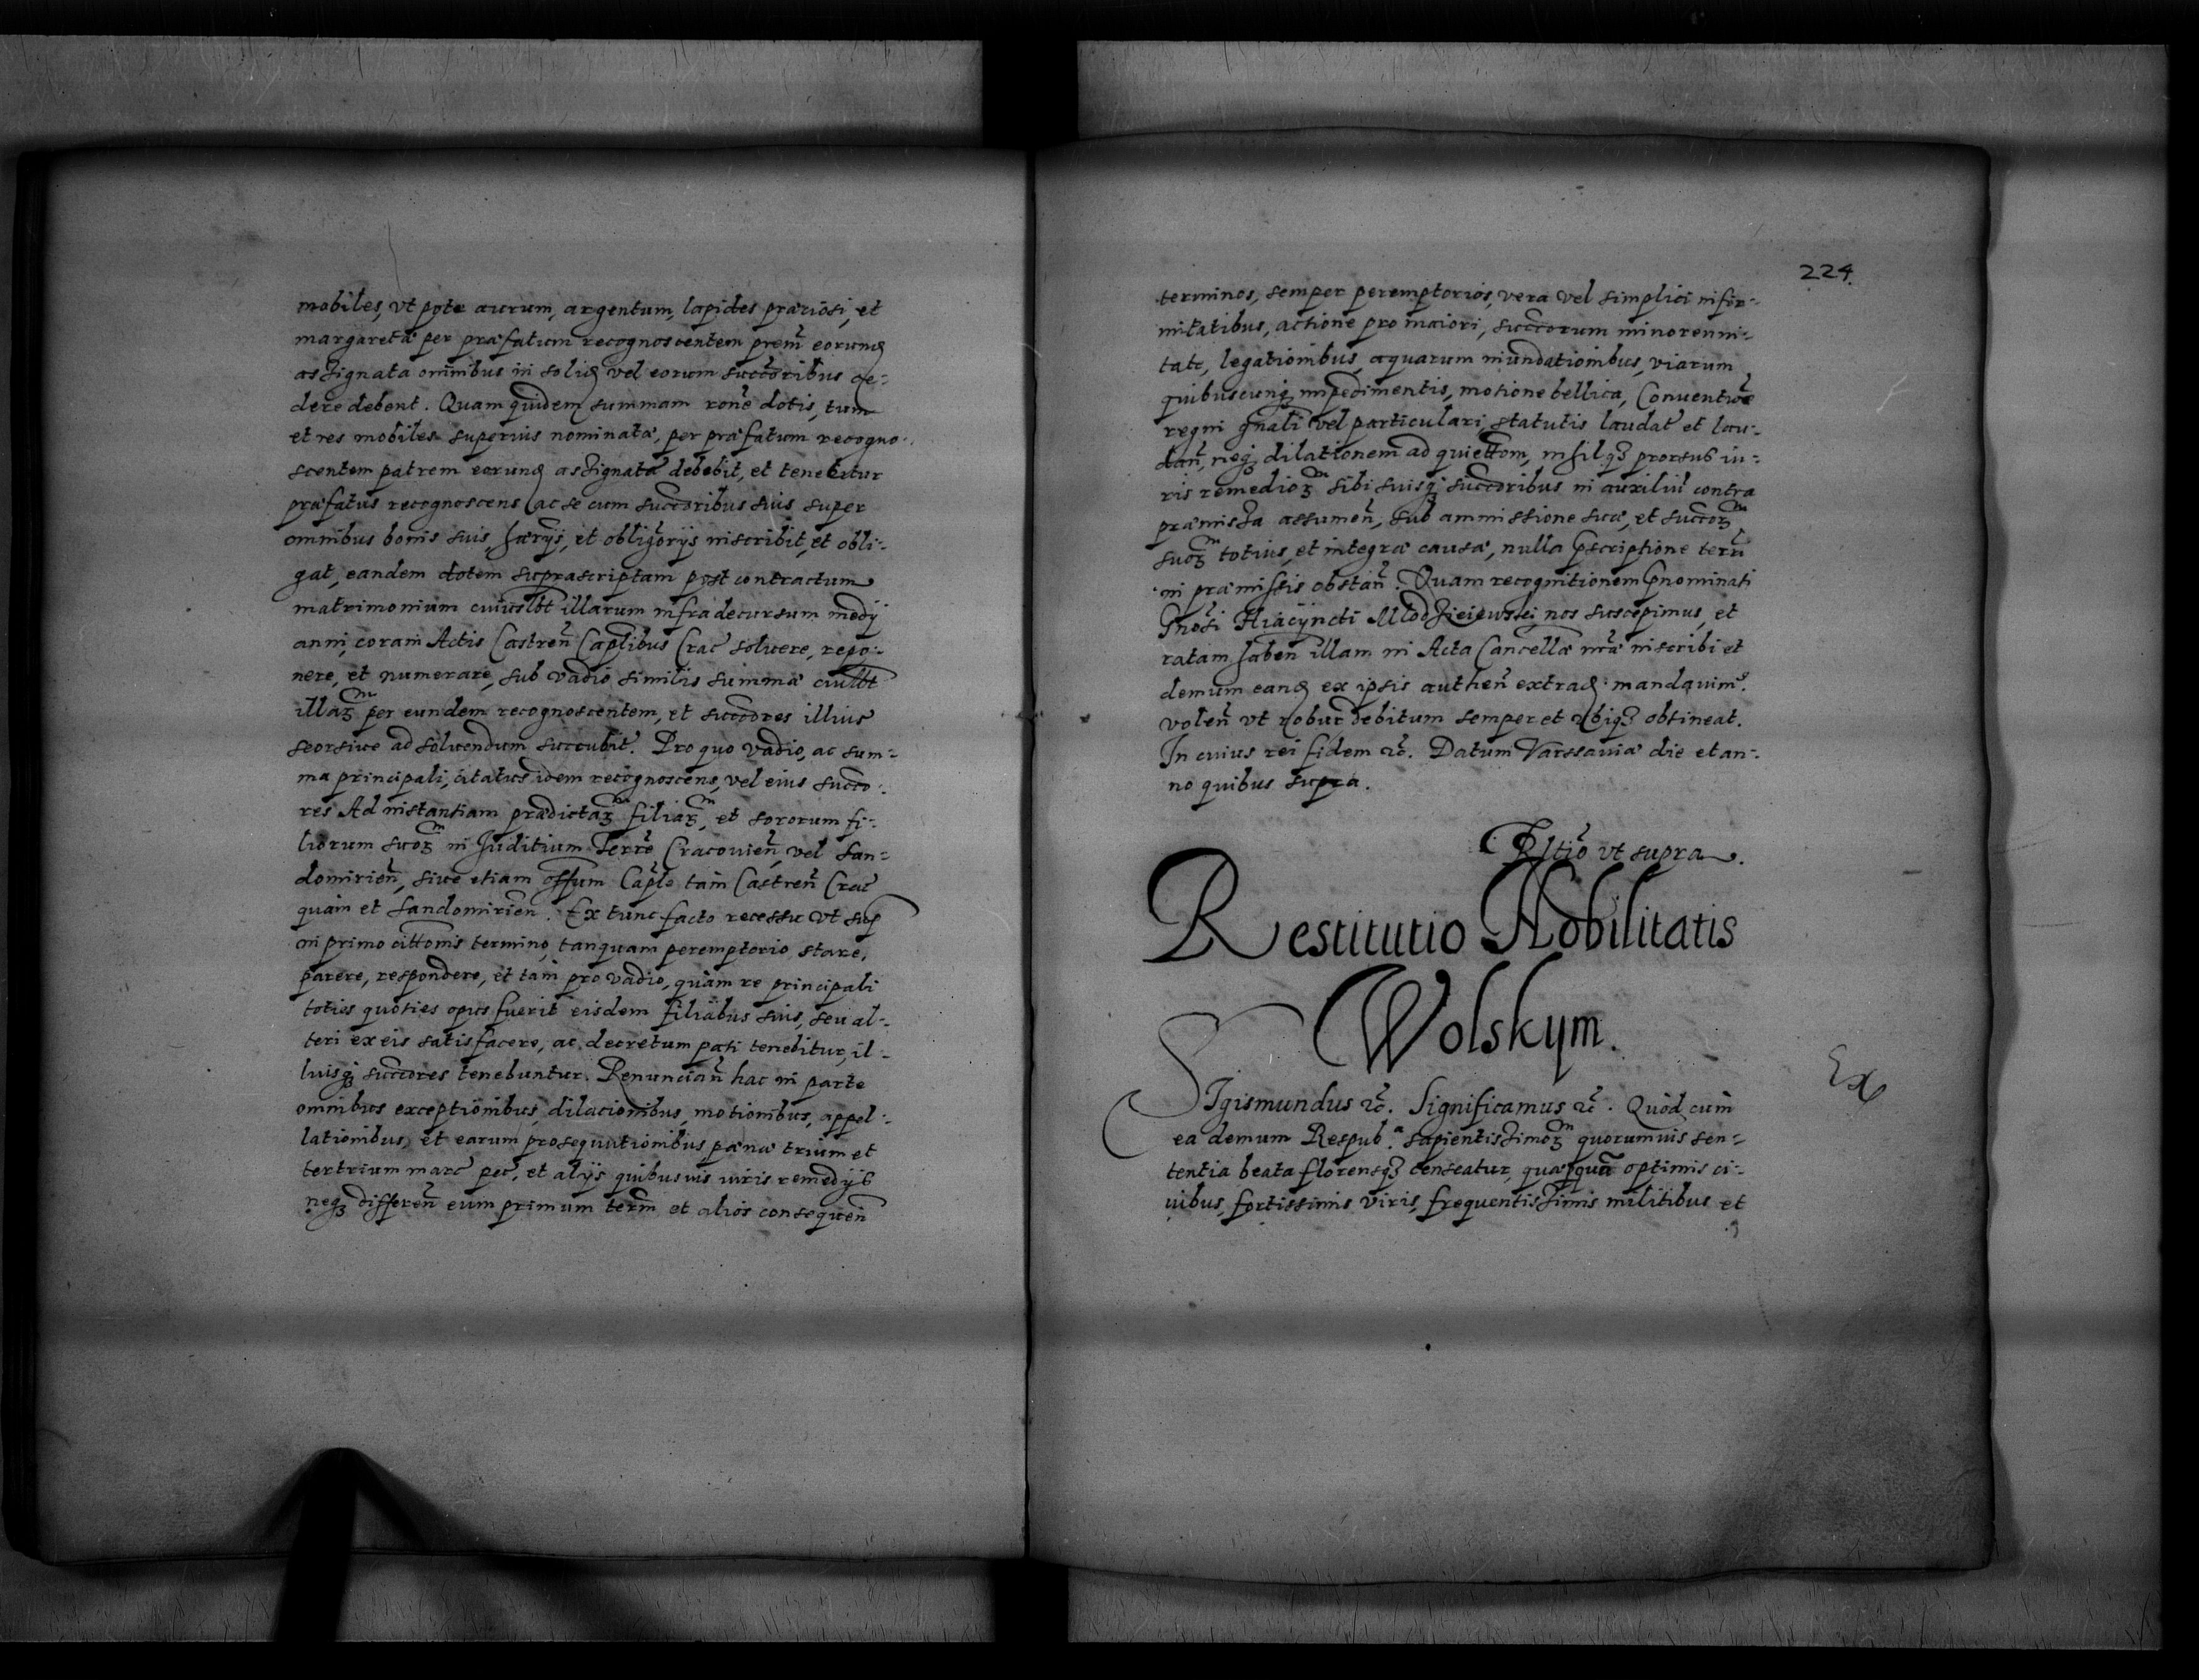 mobiles, vt pote aurum, argentum, lapides præciosi, et
margaretæ per præfatum recognoscentem prem̃ eorund
assignata omnibus in solid vel eorum succõribus ce-
dere debent. Quam quidem summam rõne dotis, tum
et res mobiles superius nominatæ, per præfatum recogno-
scentem patrem earund assignata debebit, et tenebitur
præfatus recognoscens ac se cum succõribus suis super
omnibus bonis suis, hæryš, et obligõryš inscribit, et obli-
gat, eandem dotem suprascriptam post contractum
matrimonium cuiuslbt illarum infra decursum medij
anni, coram Actis Castreñ Caplibus Crac̃ soluere, repo-
nere, et numerare, sub vadio similis summæ cuiuslbt
illaꝝ per eundem recognoscentem, et succõres illius
seorsiue ad soluendum succubit. Pro quo vadio, ac sum-
ma principali, citatus idem recognoscens, vel eius succo-
res Ad instantiam prædictaꝝ filiaꝝ, et sororum fi-
liorum suoꝝ in Juditium Terrẽ Cracouieñ, vel San-
domirieñ, siue etiam offium Caple tam Castreñ Crac̃
quam et Sandomirieñ. Ex tunc facto recessu vt sup
in primo cittonis termino, tanquam peremptorio stare,
parere, respondere, et tam pro vadio, quàm re principali
toties quoties opus fuerit eisdem filiabus suis, seu al-
teri ex eis satisfacere, ac decretum pati tenebitur, il-
liusqꝫ succõres tenebuntur. Renunciañ hac in parte
omnibus exceptionibus, dilacionibus, motionibus, appel-
lationibus, et earum prosequutionibus, pæna trium et
tertrium marc̃ pec̃, et alijs quibusuis iuris remedyš
neqꝫ differeñ eum primum term̃ et alios consequeñ
224.
terminos, semper peremptorios, vera vel simplici infir-
mitatibus, actione pro maiori, succõrum minorenni-
tate, legationibus, aquarum inundationibus, viarum
quibuscunqꝫ impedimentis, motione bellica, Conuentiõe
regni gñali vel particulari, statutis laudat̃ et lau-
dañ, neqꝫ dilationem ad quiettom, nihilqꝫ prorsus iu-
ris remedioꝝ sibi suisqꝫ succõribus in auxiliũ contra
præmissa assumeñ, sub ammissione suæ, et succoꝝ
suoꝝ totius, et integræ causæ, nulla pscriptione terr̃i
in præmissis obstañ. Quam recognitionem pnominati
Gnõsi Hiacyncti Mlodzieiewski nos suscepimus, et
ratam habeñ illam in Acta Cancellæ nr̃æ inscribi et
demum eand ex ipsis autheñ extrad mandauimꝰ.
voleñ vt robur debitum semper et vbiqꝫ obtineat.
In cuius rei fidem &c̃. Datum Varssauiæ die et an-
no quibus supra.
Rltio vt supra.
Restitutio Nobilitatis
Wolskym.
Ex
SIgismundus &c̃. Significamus &c̃. Quòd cum
ea demum Respub.ᵃ sapientissimoꝝ quorumuis sen-
tentia beata florensqꝫ censeatur, quæ quã optimis ci-
uibus, fortissimis viris, frequentissimis militibus et